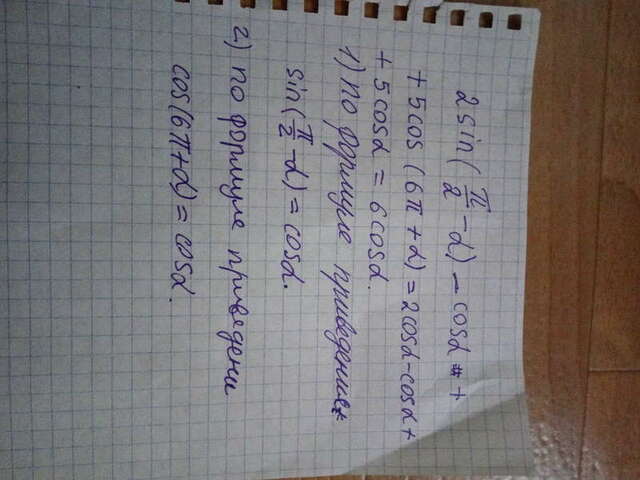 2 sin(π/2 - α) - cosα +
+ 5cos (6π + α) = 2cosα - cosα +
+ 5cosα = 6cosα.
1) по формуле приведения
sin(π/2 - α) = cosα.
2) по формуле приведени
cos(6π + α) = cosα.